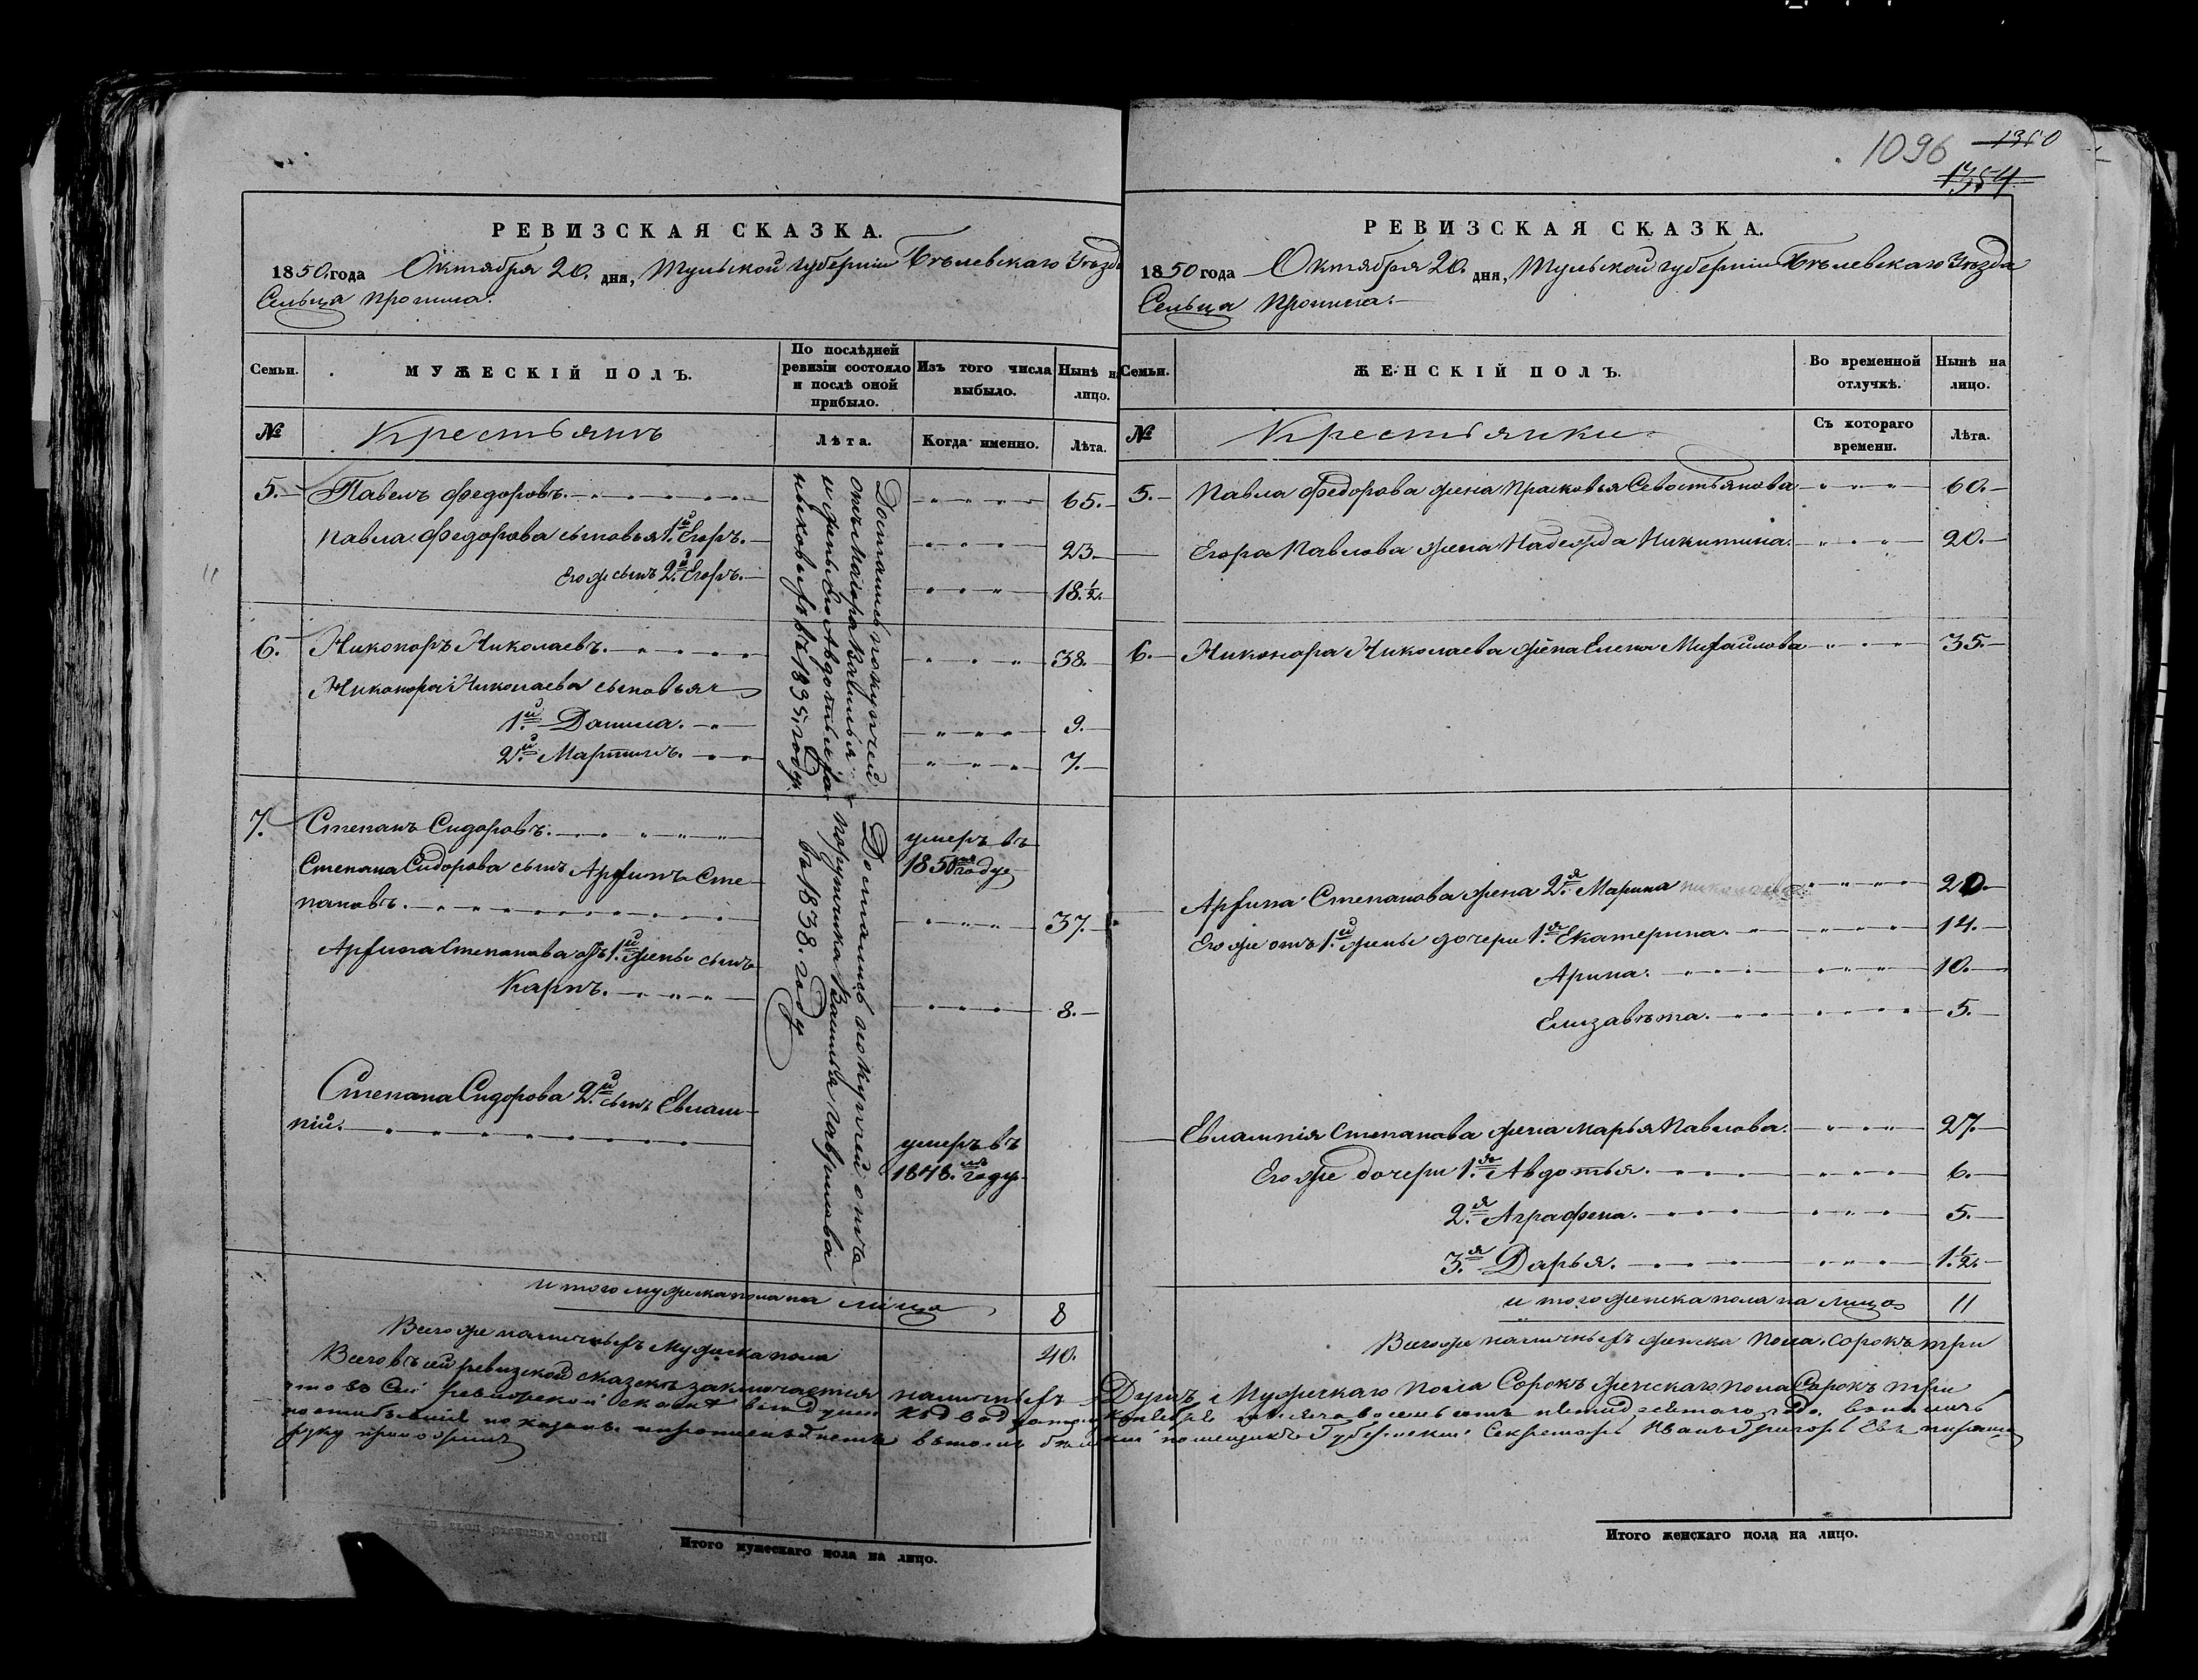 1096 1360
1354
РЕВИЗСКАЯ СКАЗКА.
1850. года Октября 20. дня, Тульской губернии Бѣлевскаго Уѣзда
Сельца Пронина.
Семьи.
МУЖЕСКІЙ ПОЛЪ.
По послѣдней
ревизіи состояло
и послѣ оной
прибыло.
Изъ того числа
выбыло.
Нынѣ на
лицо.
№
Крестьянъ
Лѣта.
Когда именно.
Лѣта.
5. Павелъ Федоровъ. 65.
Павла Федорова сыновья 1.й Егоръ. 23.
Его же сынъ 2.й Егоръ. 18.½.
6. Никоноръ Николаевъ. 38.
Никонора Николаева сыновья
1.й Данила. 9.
2.й Мартинъ. 7.
Достались покупкой
отъ Маіора Василья
и жены его Авдотьи
въ 1835. году.
7. Степанъ Сидоровъ. умеръ въ
1850 году
Степана Сидорова сынъ Арфинъ Сте-
пановъ. 37.
Арфина Степанова отъ 1.й жены сынъ
Карпъ. 8.
Степана Сидорова 2.й сынъ Евлам-
пій. умеръ въ
1848. году
Достались покупкой отъ
порутчика Василья Гаврилова
въ 1838. году
итого мужеска пола на лицо 8
Всего же наличныхъ мужеска пола 40.
РЕВИЗСКАЯ СКАЗКА.
1850 года Октября 20. дня, Тульской губернии Бѣлевскаго Уѣзда
Сельца Пронина.
Семьи.
ЖЕНСКІЙ ПОЛЪ.
Во временной
отлучкѣ.
Нынѣ на
лицо.
№
Крестьянки
Съ котораго
времени.
Лѣта.
5. Павла Федорова жена Прасковья Севостьянова 60.
Егора Павлова жена Надежда Никитина. 20.
6. Никонора Николаева жена Елена Михайлова 35.
Арфина Степанова жена 2.я Марина Николаева 20.
Его же отъ 1.й жены дочери 1.я Екатерина. 14.
Арина. 10.
Елизавѣта. 5.
Евлампія Степанова жена Марья Павлова. 27.
Его же дочери 1.я Авдотья. 6.
2.я Аграфена. 5.
3.я Дарья. 1.½.
итого женска пола на лицо 11
Всего же наличныхъ женска пола. сорокъ три
Всего въ сей ревизской сказкѣ заключается наличныхъ Душъ: Мужескаго пола Сорокъ женскаго пола Сорокъ три
что въ сей ревизской сказкѣ всѣ души
руку приложилъ
помещикъ Губернский Секретарь Иванъ Григорьевъ
Итого мужескаго пола на лицо.
Итого женскаго пола на лицо.